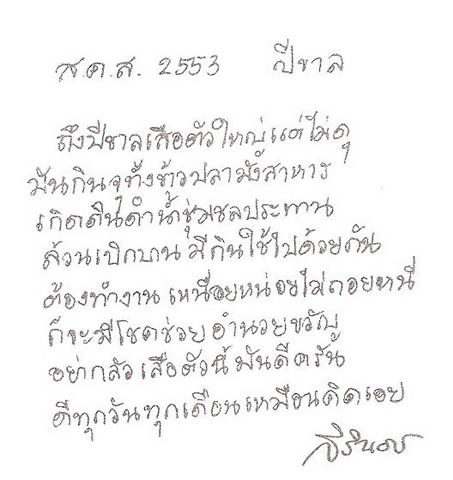 ส.ค.ส. 2553 ปีขาล
ถึงปีขาลเสือตัวใหญ่แต่ไม่ดุ
มันกินจุทั้งข้าวปลามังสาหาร
เกิดดินดำน้ำชุ่มชลประทาน
ล้วนเบิกบาน มีกินใช้ไปด้วยกัน
ต้องทำงาน เหนื่อยหน่อยไม่ถอยหนี
ก็จะมีโชคช่วย อำนวยขวัญ
อย่ากลัวเสือตัวนี้ มันดีครัน
ดีทุกวันทุกเดือนเหมือนคิดเอย
สิรินธร